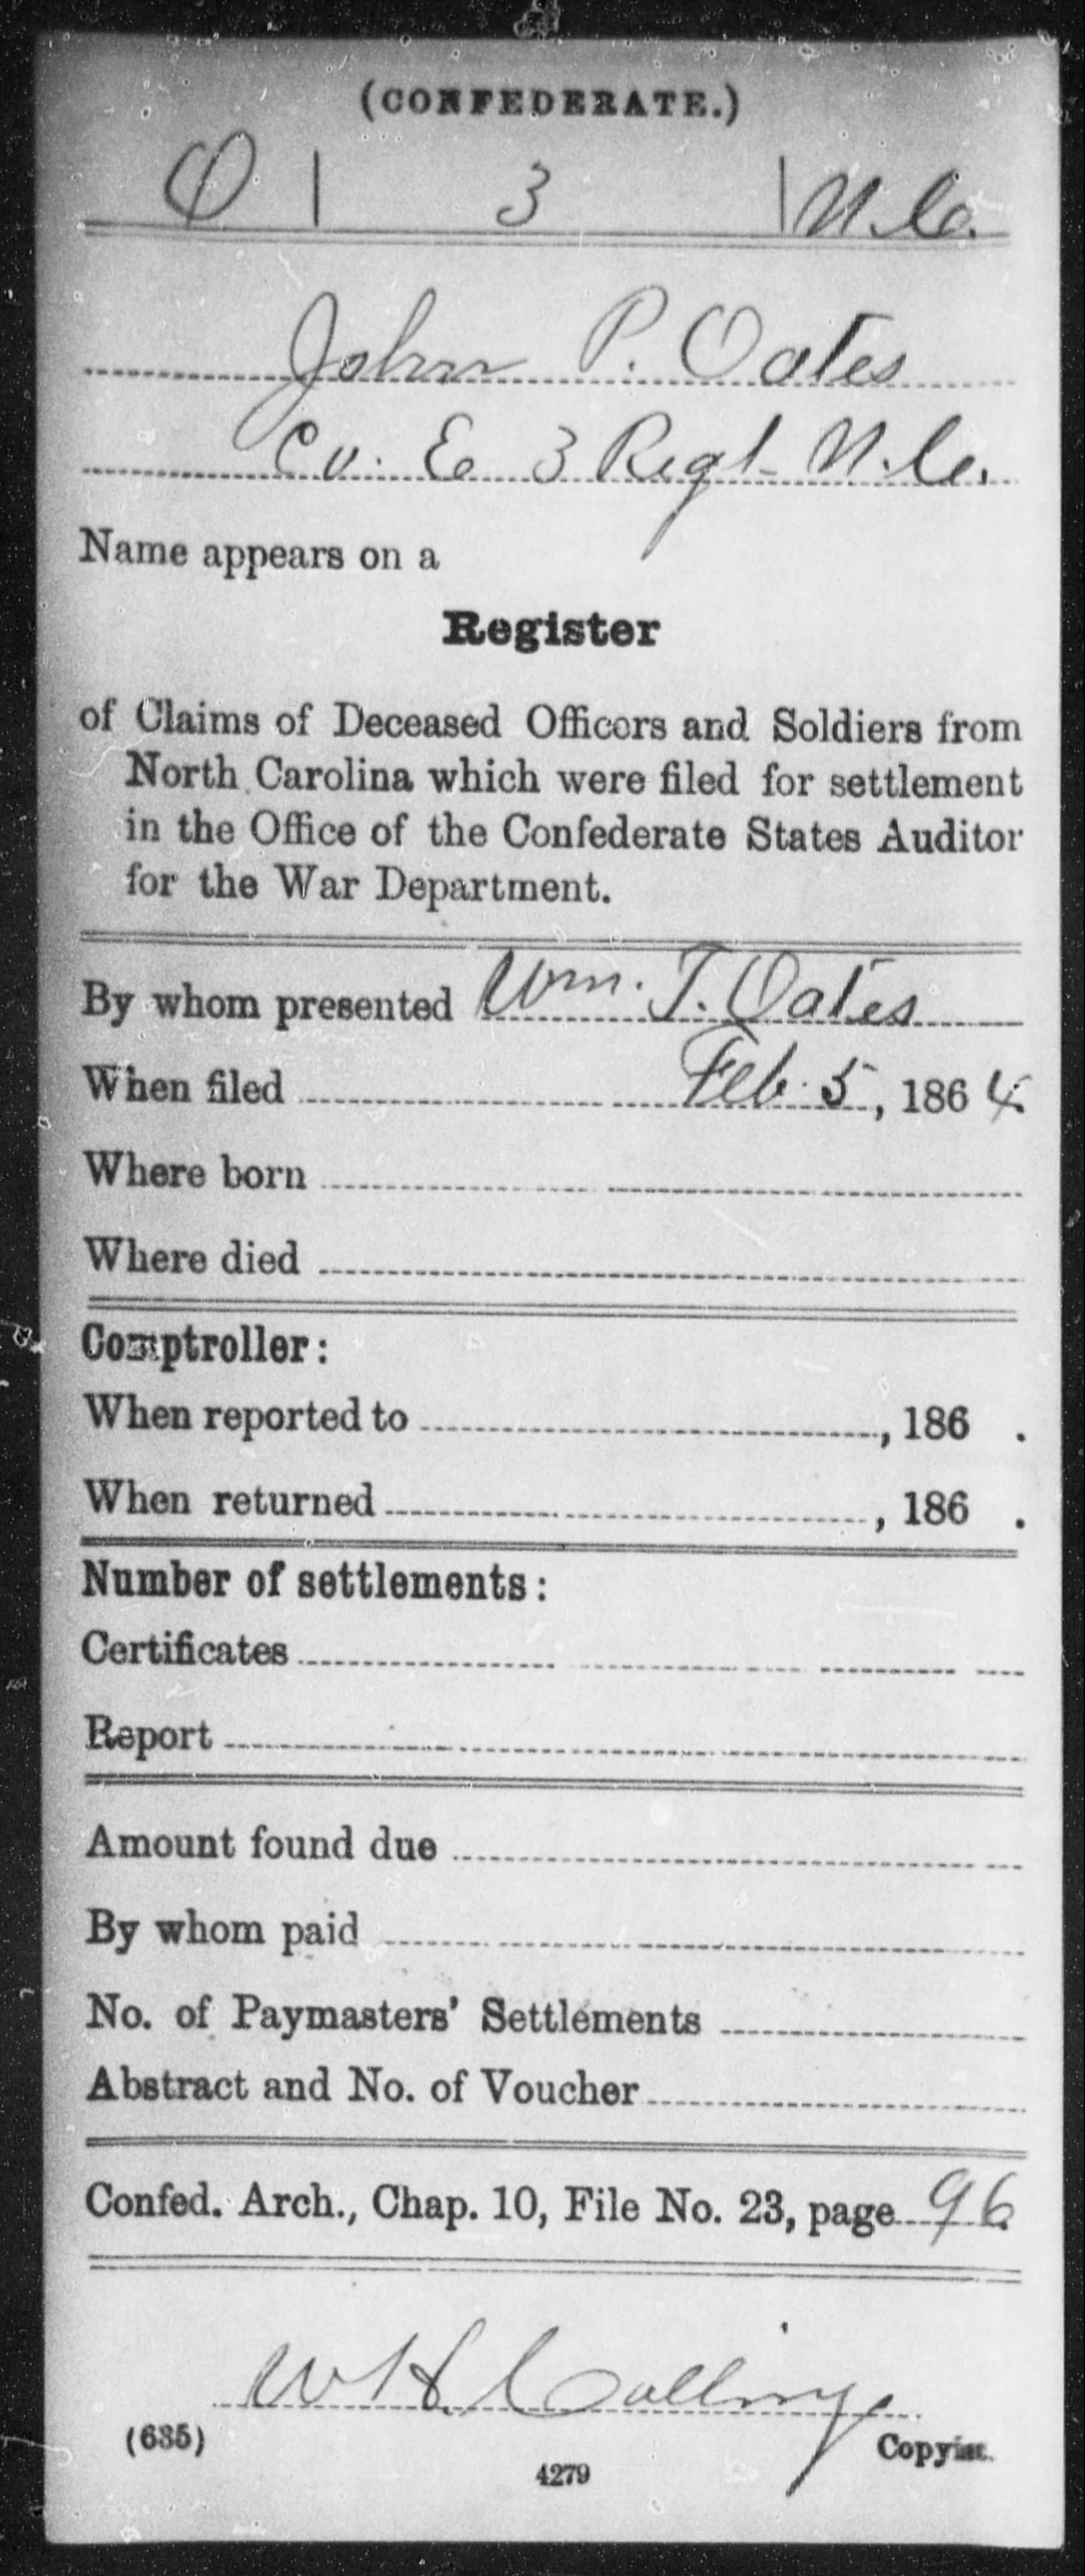 (CONFEDERATE.)
O | 3 | N.C.
John P. Oates
Co. E 3 Regt. N.C.
Name appears on a
Register
of Claims of Deceased Officers and Soldiers from
North Carolina which were filed for settlement
in the Office of the Confederate States Auditor
for the War Department.
By whom presented Wm. T. Oates
When filed Feb. 5, 1864.
Where born
Where died
Comptroller:
When reported to , 186 .
When returned , 186 .
Number of settlements:
Certificates
Report
Amount found due
By whom paid
No. of Paymasters' Settlements
Abstract and No. of Voucher
Confed. Arch., Chap. 10, File No. 23, page 96.
W H
(635)
Copyist.
4279